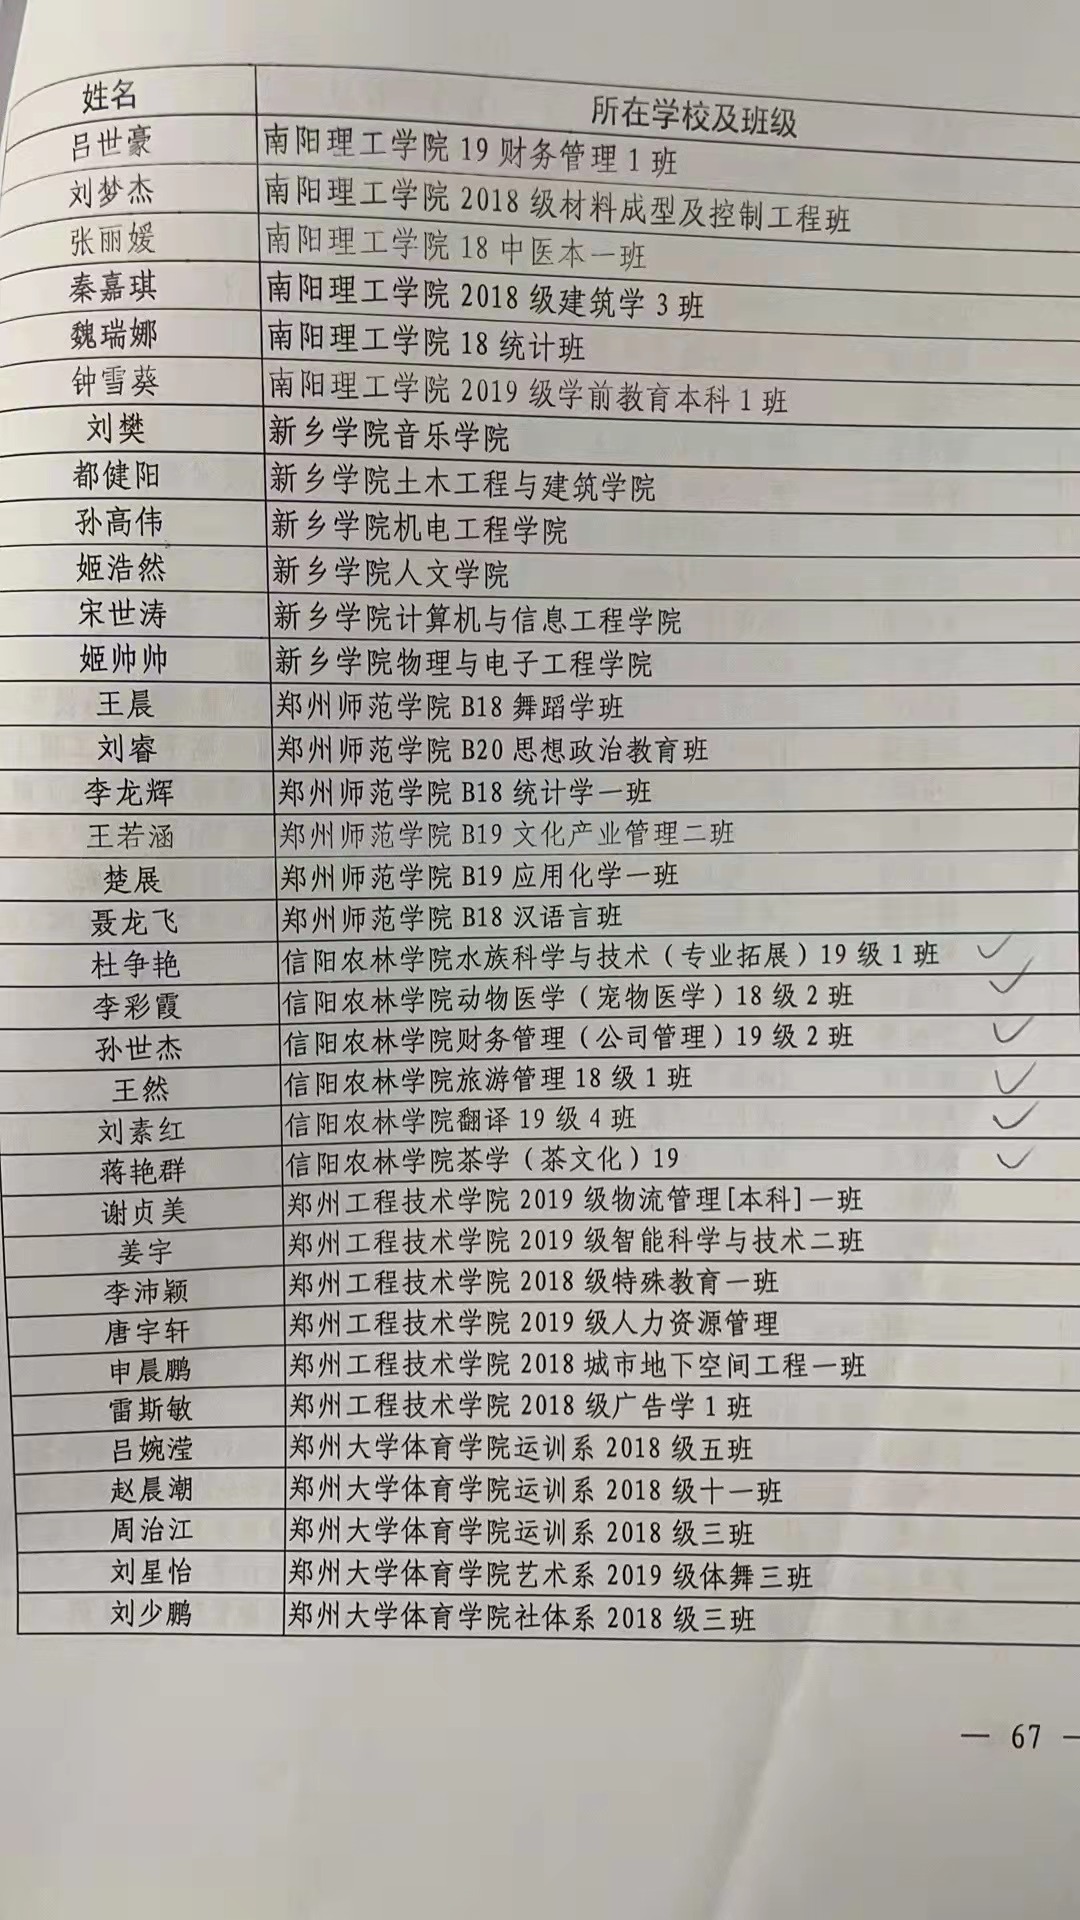 姓名 所在学校及班级
吕世豪 南阳理工学院 19 财务管理 1 班
刘梦杰 南阳理工学院 2018 级材料成型及控制工程班
张丽媛 南阳理工学院 18 中医本一班
秦嘉琪 南阳理工学院 2018 级建筑学 3 班
魏瑞娜 南阳理工学院 18 统计班
钟雪葵 南阳理工学院 2019 级学前教育本科 1 班
刘樊 新乡学院音乐学院
都健阳 新乡学院土木工程与建筑学院
孙高伟 新乡学院机电工程学院
姬浩然 新乡学院人文学院
宋世涛 新乡学院计算机与信息工程学院
姬帅帅 新乡学院物理与电子工程学院
王晨 郑州师范学院 B18 舞蹈学班
刘睿 郑州师范学院 B20 思想政治教育班
李龙辉 郑州师范学院 B18 统计学一班
王若涵 郑州师范学院 B19 文化产业管理二班
楚展 郑州师范学院 B19 应用化学一班
聂龙飞 郑州师范学院 B18 汉语言班
杜争艳 信阳农林学院水族科学与技术（专业拓展）19 级 1 班
李彩霞 信阳农林学院动物医学（宠物医学）18 级 2 班
孙世杰 信阳农林学院财务管理（公司管理）19 级 2 班
王然 信阳农林学院旅游管理 18 级 1 班
刘素红 信阳农林学院翻译 19 级 4 班
蒋艳群 信阳农林学院茶学（茶文化）19
谢贞美 郑州工程技术学院 2019 级物流管理[本科]一班
姜宇 郑州工程技术学院 2019 级智能科学与技术二班
李沛颖 郑州工程技术学院 2018 级特殊教育一班
唐宇轩 郑州工程技术学院 2019 级人力资源管理
申晨鹏 郑州工程技术学院 2018 城市地下空间工程一班
雷斯敏 郑州工程技术学院 2018 级广告学 1 班
吕婉滢 郑州大学体育学院运训系 2018 级五班
赵晨潮 郑州大学体育学院运训系 2018 级十一班
周治江 郑州大学体育学院运训系 2018 级三班
刘星怡 郑州大学体育学院艺术系 2019 级体舞三班
刘少鹏 郑州大学体育学院社体系 2018 级三班
— 67 —